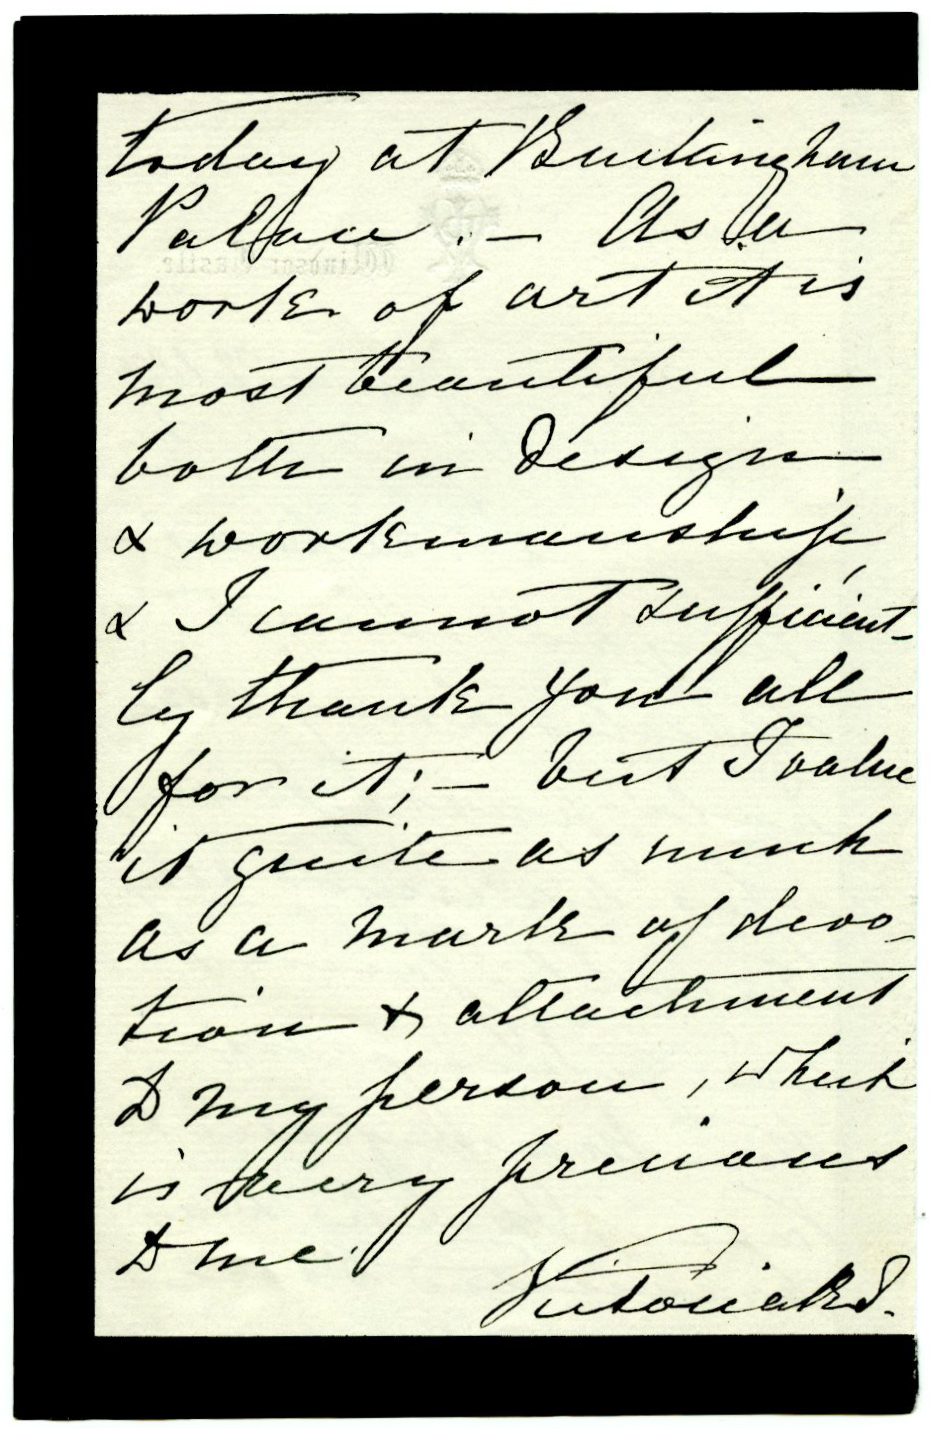 today at Buckingham
Palace. — As a
work of art it is
most beautiful
both in design
& workmanship,
& I cannot sufficient-
ly thank you all
for it; — but I value
it quite as much
as a mark of devo-
tion & attachment
to my person, which
is very precious
to me.
Victoria R I.
Windsor Castle.